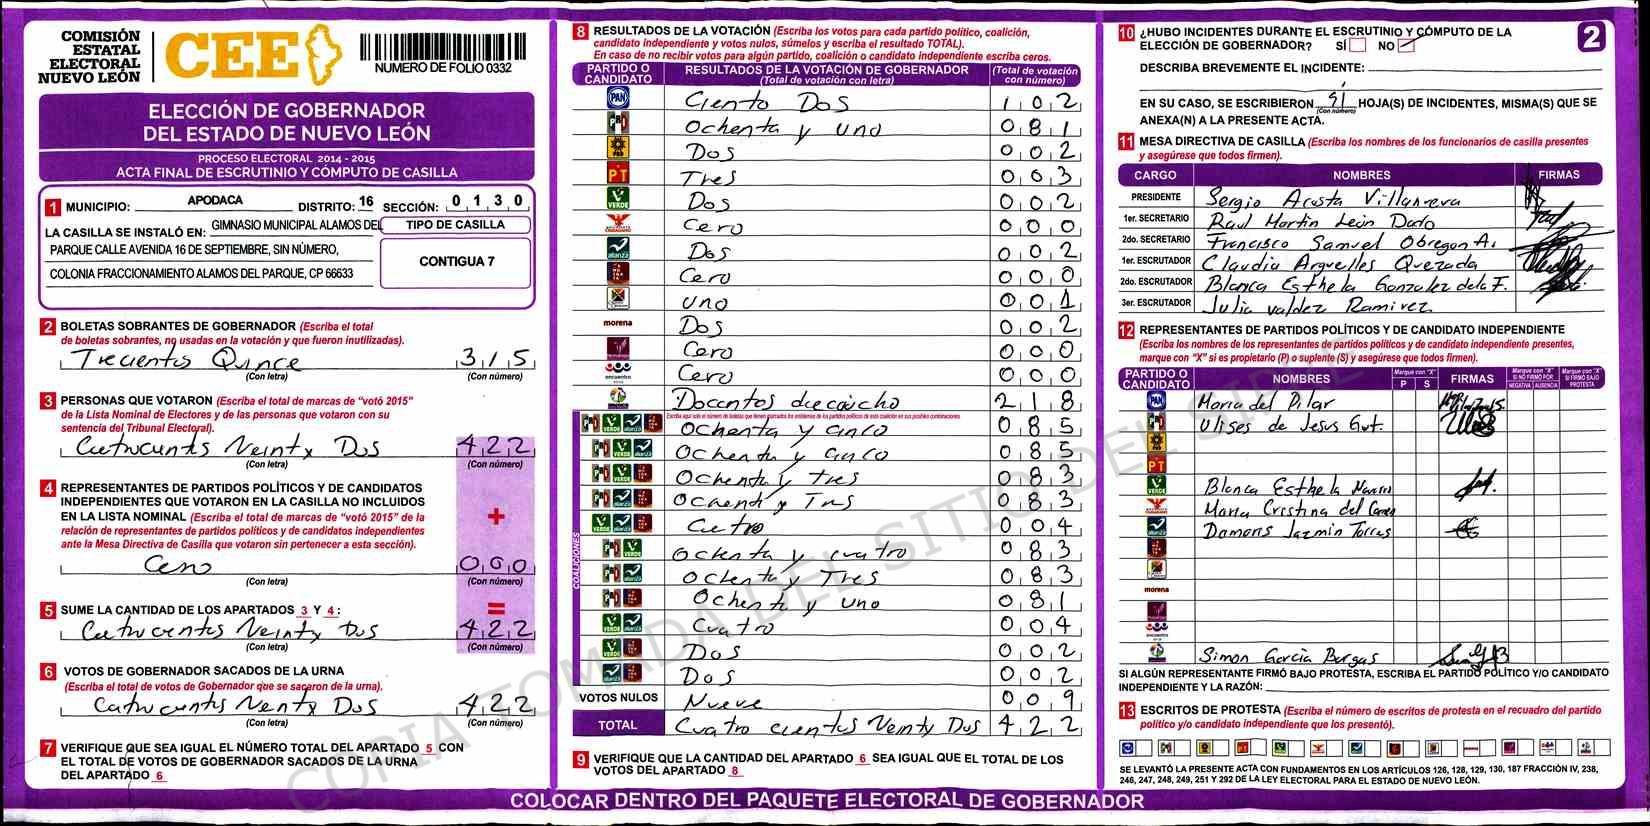 COMISIÓN
ESTATAL
ELECTORAL
NUEVO LEÓN
CEE
NUMERO DE FOLIO 0332
ELECCIÓN DE GOBERNADOR
DEL ESTADO DE NUEVO LEÓN
PROCESO ELECTORAL 2014 - 2015
ACTA FINAL DE ESCRUTINIO Y CÓMPUTO DE CASILLA
1 MUNICIPIO: APODACA DISTRITO: 16 SECCIÓN: 0 1 3 0
LA CASILLA SE INSTALÓ EN: GIMNASIO MUNICIPAL ALAMOS DEL
PARQUE CALLE AVENIDA 16 DE SEPTIEMBRE, SIN NÚMERO,
COLONIA FRACCIONAMIENTO ALAMOS DEL PARQUE, CP 66633
TIPO DE CASILLA
CONTIGUA 7
2 BOLETAS SOBRANTES DE GOBERNADOR (Escriba el total
de boletas sobrantes, no usadas en la votación y que fueron inutilizadas).
Trecientos Quince 3 1 5
(Con letra) (Con número)
3 PERSONAS QUE VOTARON (Escriba el total de marcas de “votó 2015”
de la Lista Nominal de Electores y de las personas que votaron con su
sentencia del Tribunal Electoral).
Catrocuntos Veinty Dos 4 2 2
(Con letra) (Con número)
4 REPRESENTANTES DE PARTIDOS POLÍTICOS Y DE CANDIDATOS
INDEPENDIENTES QUE VOTARON EN LA CASILLA NO INCLUIDOS
EN LA LISTA NOMINAL (Escriba el total de marcas de “votó 2015” de la
relación de representantes de partidos políticos y de candidatos independientes
ante la Mesa Directiva de Casilla que votaron sin pertenecer a esta sección).
+
Cero 0 0 0
(Con letra) (Con número)
5 SUME LA CANTIDAD DE LOS APARTADOS 3 Y 4 : =
Catrocientos Veinty Dos 4 2 2
(Con letra) (Con número)
6 VOTOS DE GOBERNADOR SACADOS DE LA URNA
(Escriba el total de votos de Gobernador que se sacaron de la urna).
Catrocuntos Venty Dos 4 2 2
(Con letra) (Con número)
7 VERIFIQUE QUE SEA IGUAL EL NÚMERO TOTAL DEL APARTADO 5 CON
EL TOTAL DE VOTOS DE GOBERNADOR SACADOS DE LA URNA
DEL APARTADO 6
8 RESULTADOS DE LA VOTACIÓN (Escriba los votos para cada partido político, coalición,
candidato independiente y votos nulos, súmelos y escriba el resultado TOTAL).
En caso de no recibir votos para algún partido, coalición o candidato independiente escriba ceros.
PARTIDO O CANDIDATO RESULTADOS DE LA VOTACIÓN DE GOBERNADOR (Total de votación con letra) (Total de votación con número)
PAN Ciento Dos 1 0 2
PRI Ochenta y uno 0 8 1
PRD Dos 0 0 2
PT Tres 0 0 3
VERDE Dos 0 0 2
Cero 0 0 0
alianza Dos 0 0 2
Cero 0 0 0
uno 0 0 1
morena Dos 0 0 2
Cero 0 0 0
encuentro Cero 0 0 0
Docentos diecicho 2 1 8
COALICIONES
Escriba aquí solo el número de boletas que tienen marcados los emblemas de los partidos políticos de esta coalición en sus posibles combinaciones.
PRI VERDE alianza Ochenta y cinco 0 8 5
PRI VERDE alianza Ochenta y cinco 0 8 5
PRI VERDE Ochenta y tres 0 8 3
PRI alianza Ochenta y Tres 0 8 3
VERDE alianza Catro 0 0 4
PRI VERDE Ochenta y cuatro 0 8 3
PRI alianza Ochenta y Tres 0 8 3
PRI Ochenta y uno 0 8 1
VERDE alianza Cuatro 0 0 4
VERDE Dos 0 0 2
alianza Dos 0 0 2
VOTOS NULOS Nueve 0 0 9
TOTAL Cuatro cientos Veinty Dos 4 2 2
9 VERIFIQUE QUE LA CANTIDAD DEL APARTADO 6 SEA IGUAL QUE EL TOTAL DE LOS
VOTOS DEL APARTADO 8
10 ¿HUBO INCIDENTES DURANTE EL ESCRUTINIO Y CÓMPUTO DE LA
ELECCIÓN DE GOBERNADOR? SÍ NO
2
DESCRIBA BREVEMENTE EL INCIDENTE:
EN SU CASO, SE ESCRIBIERON HOJA(S) DE INCIDENTES, MISMA(S) QUE SE
(Con número)
ANEXA(N) A LA PRESENTE ACTA.
11 MESA DIRECTIVA DE CASILLA (Escriba los nombres de los funcionarios de casilla presentes
y asegúrese que todos firmen).
CARGO NOMBRES FIRMAS
PRESIDENTE Sergio Acosta Villanreva
1er. SECRETARIO Raul Martin León Dato
2do. SECRETARIO Francisco Samuel Obregon A.
1er. ESCRUTADOR Claudia Arguelles Quezada
2do. ESCRUTADOR Blanca Esthela Gonzalez dela F.
3er. ESCRUTADOR Julia valdez Ramirez
12 REPRESENTANTES DE PARTIDOS POLÍTICOS Y DE CANDIDATO INDEPENDIENTE
(Escriba los nombres de los representantes de partidos políticos y de candidato independiente presentes,
marque con “X” si es propietario (P) o suplente (S) y asegúrese que todos firmen).
PARTIDO O CANDIDATO NOMBRES Marque con “X” P S FIRMAS Marque con “X” SI NO FIRMÓ POR NEGATIVA AUSENCIA Marque con “X” SI FIRMÓ BAJO PROTESTA
PAN Maria del Pilar
PRI Ulises de Jesus Gut.
PRD
PT
VERDE Blanca Esthela Navarro
Maria Cristina del Carmen
alianza Damaris Jazmin Torres
morena
encuentro
Simon Garcia Bargas
SI ALGÚN REPRESENTANTE FIRMÓ BAJO PROTESTA, ESCRIBA EL PARTIDO POLÍTICO Y/O CANDIDATO
INDEPENDIENTE Y LA RAZÓN:
13 ESCRITOS DE PROTESTA (Escriba el número de escritos de protesta en el recuadro del partido
político y/o candidato independiente que los presentó).
SE LEVANTÓ LA PRESENTE ACTA CON FUNDAMENTOS EN LOS ARTÍCULOS 126, 128, 129, 130, 187 FRACCIÓN IV, 238,
246, 247, 248, 249, 251 Y 292 DE LA LEY ELECTORAL PARA EL ESTADO DE NUEVO LEÓN.
COLOCAR DENTRO DEL PAQUETE ELECTORAL DE GOBERNADOR
COPIA TOMADA DEL SITIO DEL SIPRE